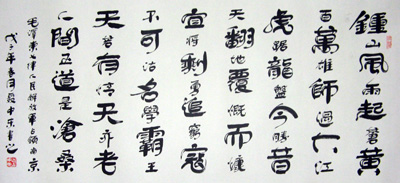 鍾山風雨起蒼黄
百萬雄師過大江
虎踞龍盤今勝昔
天翻地覆慨而慷
宜將剩勇追窮寇
不可沽名學霸王
天若有情天亦老
人間正道是滄桑
毛澤東七律人民解放軍占領南京
戊子年春月